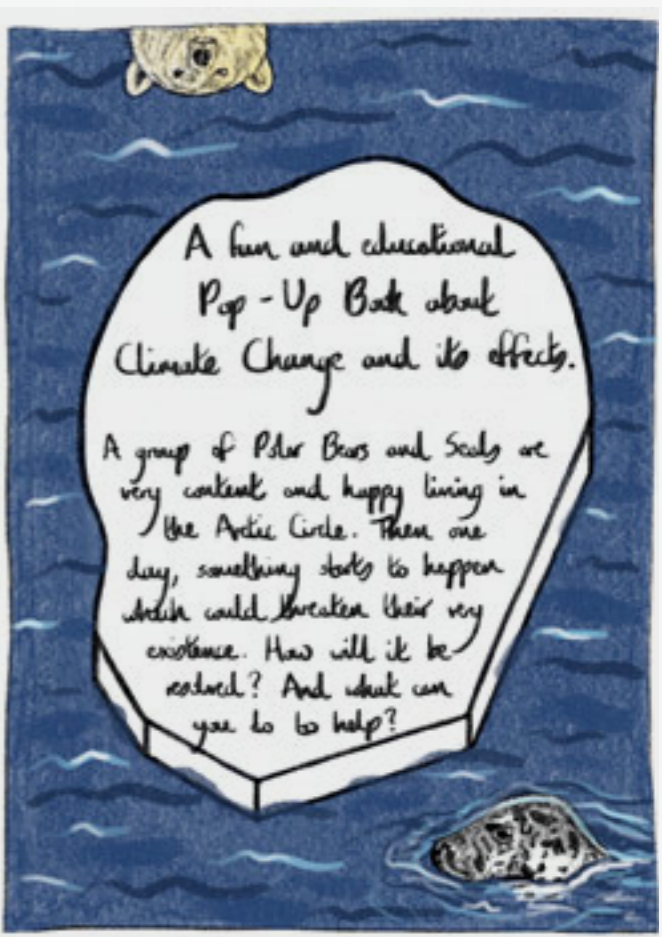 A fun and educational
Pop-Up Book about
Climate Change and its effects.
A group of Polar Bears and Seals are
very content and happy living in
the Arctic Circle. Then one
day, something starts to happen
which could threaten their very
existence. How will it be
resolved? And what can
you do to help?